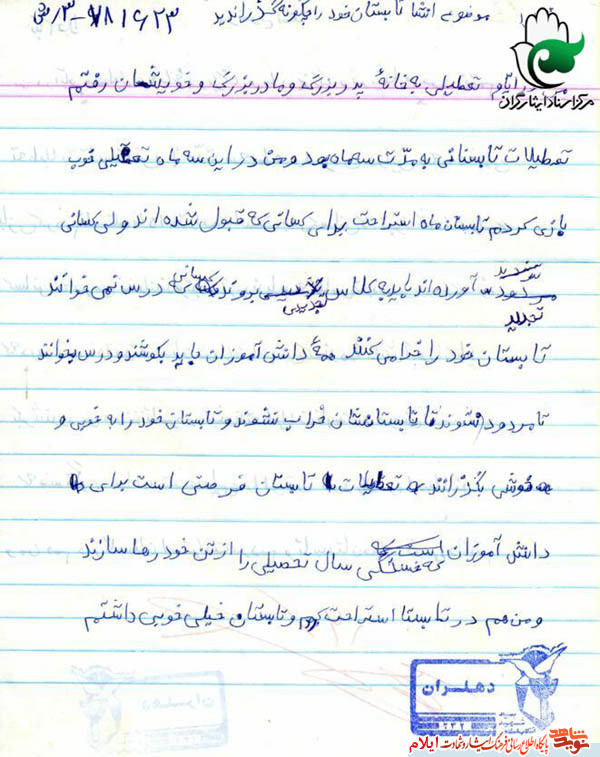 موضوع انشا تابستان خود را چگونه گذراندید
مرکز اسناد ایثارگران
ایام تعطیلی به خانهٔ پدربزرگ و مادربزرگ و خویشمان رفتم
تعطیلات تابستانی به مدّت سه ماه بود و من در این سه ماه تعطیلی خوب
بازی کردم تابستان ماه استراحت برای کسانی که قبول شده اند ولی کسانی
تجدید آورده اند باید به کلاس تجدیدی بروند کسانی که درس نمی خوانند
تابستان خود را خرامی کنند همهٔ دانش آموزان باید بکوشند و درس بخوانند
تا مردود نشوند تا تابستانشان خراب نشوند و تابستان خود را به خوبی و
خوشی بگذرانند تعطیلات تابستان فرصتی است برای
دانش آموزان است که
که خستگی سال تحصیلی را از تن خود رها سازند
و من هم در تابستا استراحت کردم و تابستان خیلی خوبی داشتم
دهلران
۲۳۲
نوید شاهد
پایگاه اطلاع رسانی فرهنگ ایثار و شهادت ایلام